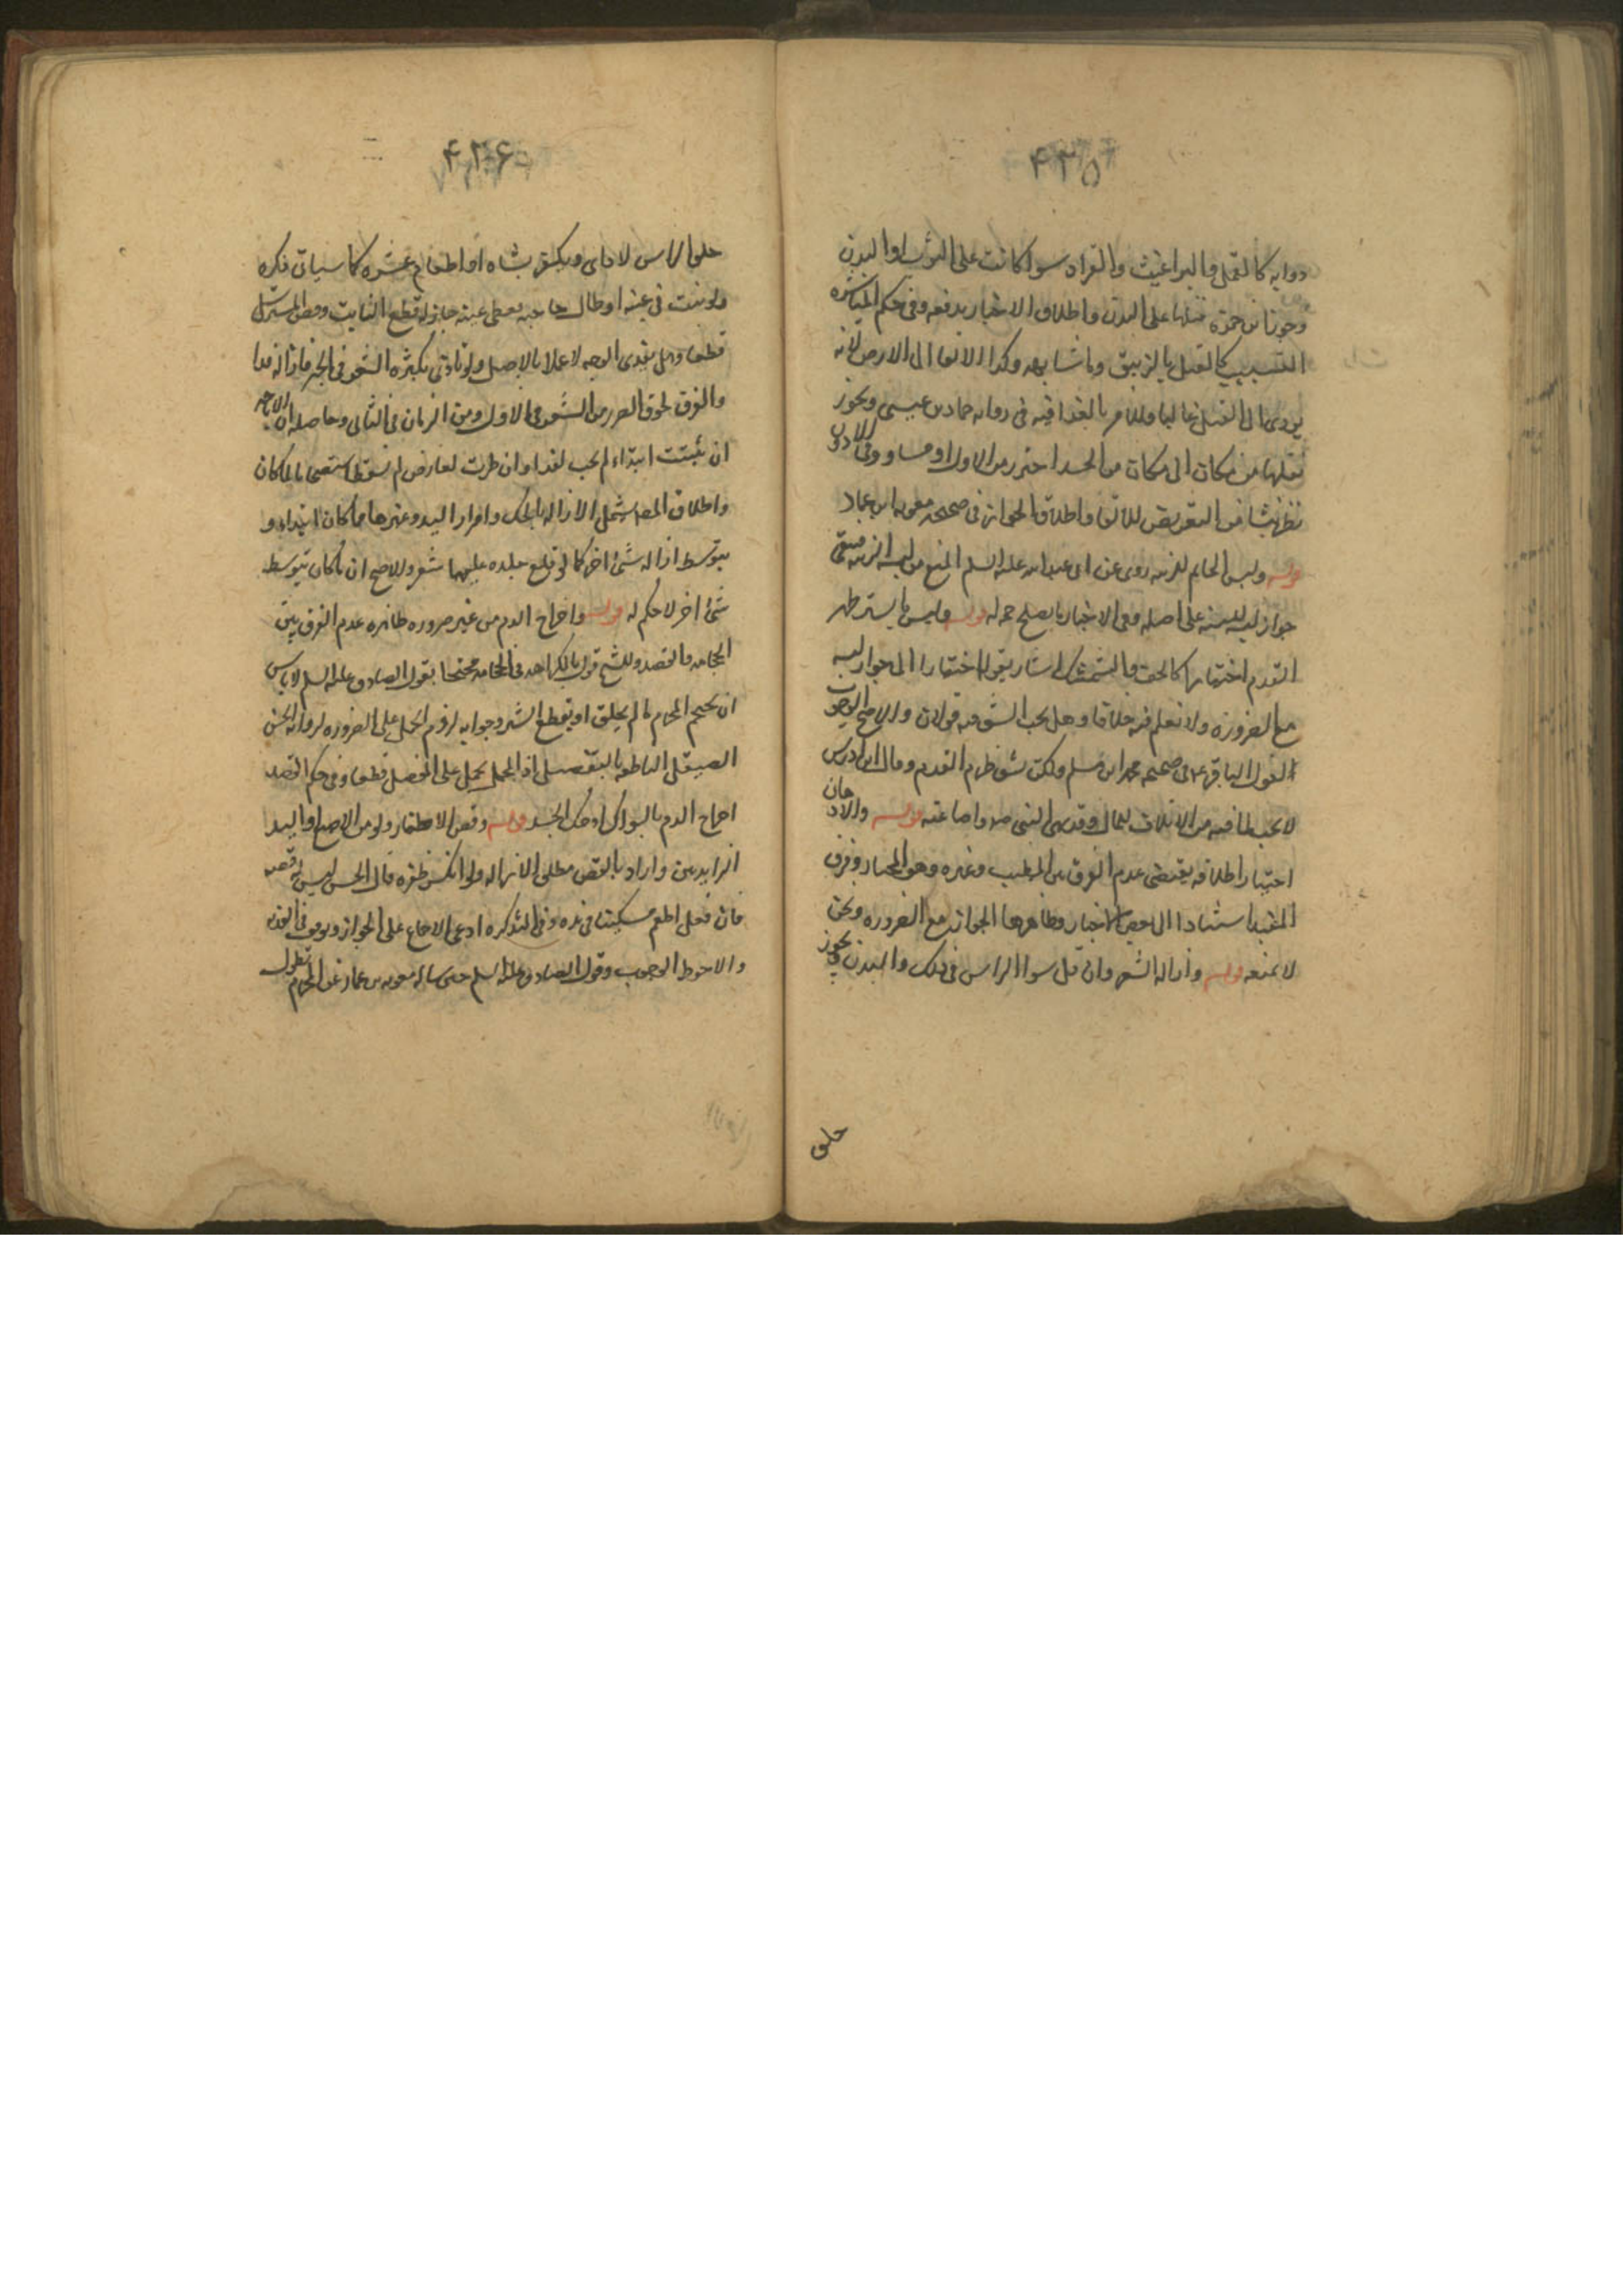 ۴۳۵
دوابه كالقمل والبراغيث والقراد سوا كانت على الثوب او البدن
وجوز ابن حمزة قتلها على البدن واطلاق الاخبار يدفعه وفى حكم المباشره
التسبيب كالقتل بالزيبق وما شابهه وكذا الالقا الى الارض لانه
يودى الى القتل غالبا وللامر بالفدا فيه فى روايه حماد بن عيسى ويجوز
نقلها من مكان الى مكان من الجسد احترز من الاول او مساو وفى الادون
نظر ينشا من التعريض للالقا واطلاق الجواز فى صحيحه معويه ابن عمار
قوله ولبس الخاتم للزينه روى عن ابى عبد الله عليه السلم المنع من لبسه للزينه فيبقى
جواز لبسه للسنه على اصله وفى الاخبار ما يصلح حمله قوله ولبس ما يستر ظهر
القدم اختيارا كالخف والشمشك اشار بقوله اختيارا الى جواز لبسه
مع الضروره ولا نعلم فيه خلافا وهل يجب الشق فيه قولان والاصح الوجوب
لقول الباقر ع فى صحيحه محمد ابن مسلم ولكن يشق ظهر القدم وقال ابن ادريس
لا يجب لما فيه من الاتلاف للمال وقد نهى النبى ص عن اضاعته قوله والادهان
اختيارا اطلاقه يقتضى عدم الفرق بين المطيب وغيره وهو المختار وفرق
المفيد استنادا الى بعض الاخبار وظاهرها الجواز مع الضروره ونحن
لا نمنعه قوله وازاله الشعر وان قل سوا الراس فى ذلك والبدن ويجوز
حلق
۴۳۶
حلق الراس لاذى ويكفر بشاه او اطعام عشره كما سياتى ذكره
ولو نبت فى عينه او طال حاجبه فغطى عينه جاز له قطع النابت وقص المسترسل
قطعا وهل يفدى الوجه لا عملا بالاصل ولو تاذى بكثره الشعر فى الحر فازاله فدا
والفرق لحوق الضرر من الشعر فى الاول ومن الزمان فى الثانى وحاصله ان الاحمر
ان ثبتت ابتداء لم يجب لفدا وان طرت لعارض لم تسقط استصحابا لما كان
واطلاق المص يشمل الازاله بالحك وامرار اليد وغيرها مما كان ابتداء او
بتوسط ازاله شىء اخر كما لو قلع جلده عليها شعر والاصح ان ما كان بتوسط
شىء اخر لا حكم له قوله واخراج الدم من غير ضروره ظاهره عدم الفرق بين
الحجامه والفصد وللشيخ قول بالكراهه فى الحجامه محتجا بقول الصادق عليه السلم لا باس
ان يحتجم المحرم ما لم يحلق او يقطع الشعر وجوابه لزوم الحمل على الضروره لروايه الحسن
الصيقل الناطقه بالتفصيل اذ المجمل يحمل على المفصل قطعا وفى حكم الفصد
اخراج الدم بالسواك او حك الجسد قوله وقص الاظفار ولو من الاصبع او اليد
الزايدتين واراد بالقص مطلق الازاله ولو انكسر ظفره قال الحسن ليس له قصه
فان فعل اطعم مسكينا فى يده وفى التذكره ادعى الاجماع على الجواز وتوقف فى الفديه
والاحوط الوجوب وقول الصادق عليه السلم حين ساله معويه بن عمار عن المحرم تطول